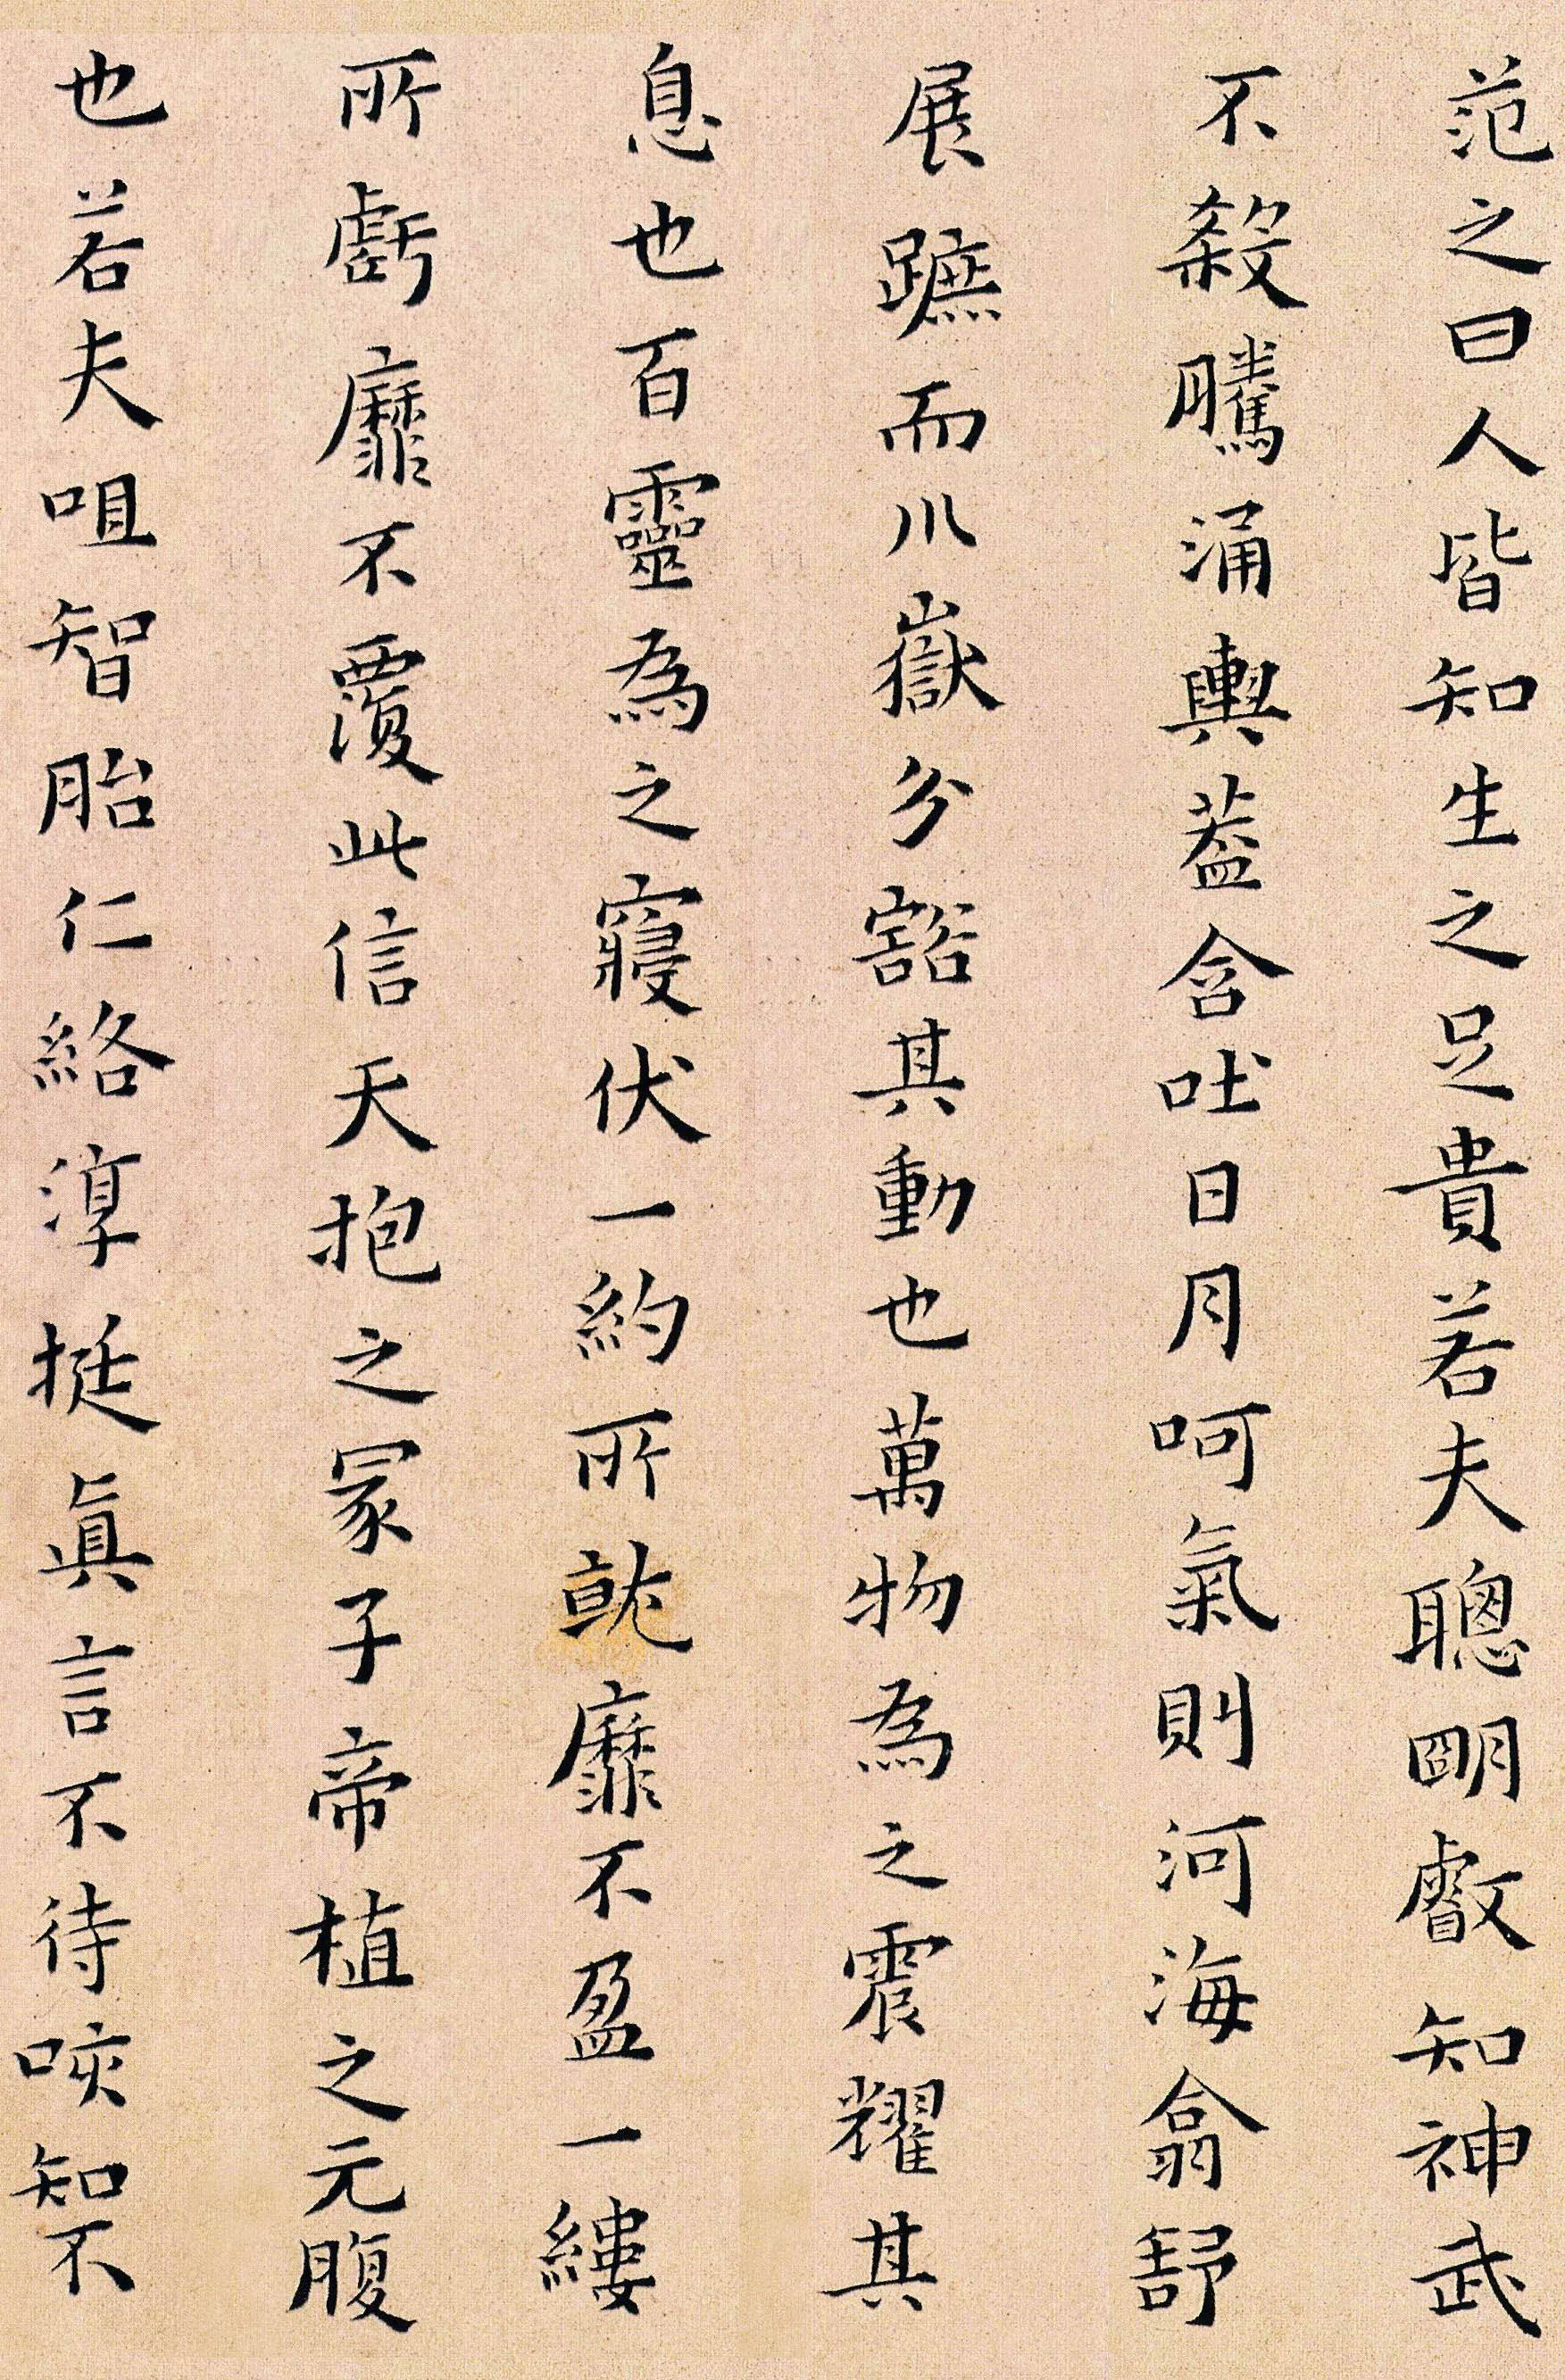 范之曰人皆知生之足貴若夫聰明叡知神武
不殺騰涌輿蓋含吐日月呵氣則河海翕舒
展蹠而川嶽分豁其動也萬物為之震耀其
息也百靈為之寢伏一約所就靡不盈一縷
所虧靡不覆此信天抱之冢子帝植之元腹
也若夫咀智胎仁絡淳挻眞言不待咲知不